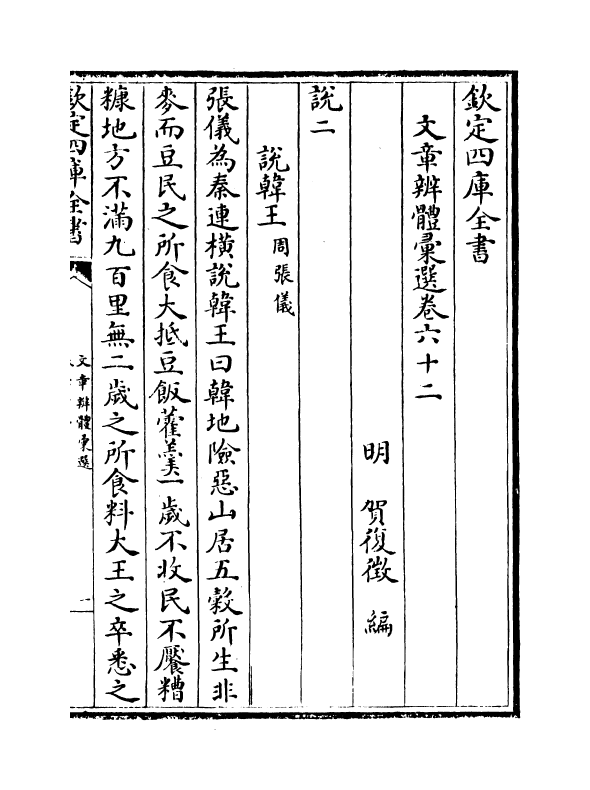 欽定四庫全書
文章辨體彚選卷六十二
明 賀復徵 編
說二
說韓王周張儀
張儀為秦連橫說韓王曰韓地險惡山居五穀所生非
麥而豆民之所食大抵豆飯藿羹一歲不收民不饜糟
糠地方不滿九百里無二歲之所食料大王之卒悉之
欽定四庫全書
文章辨體彚選
一